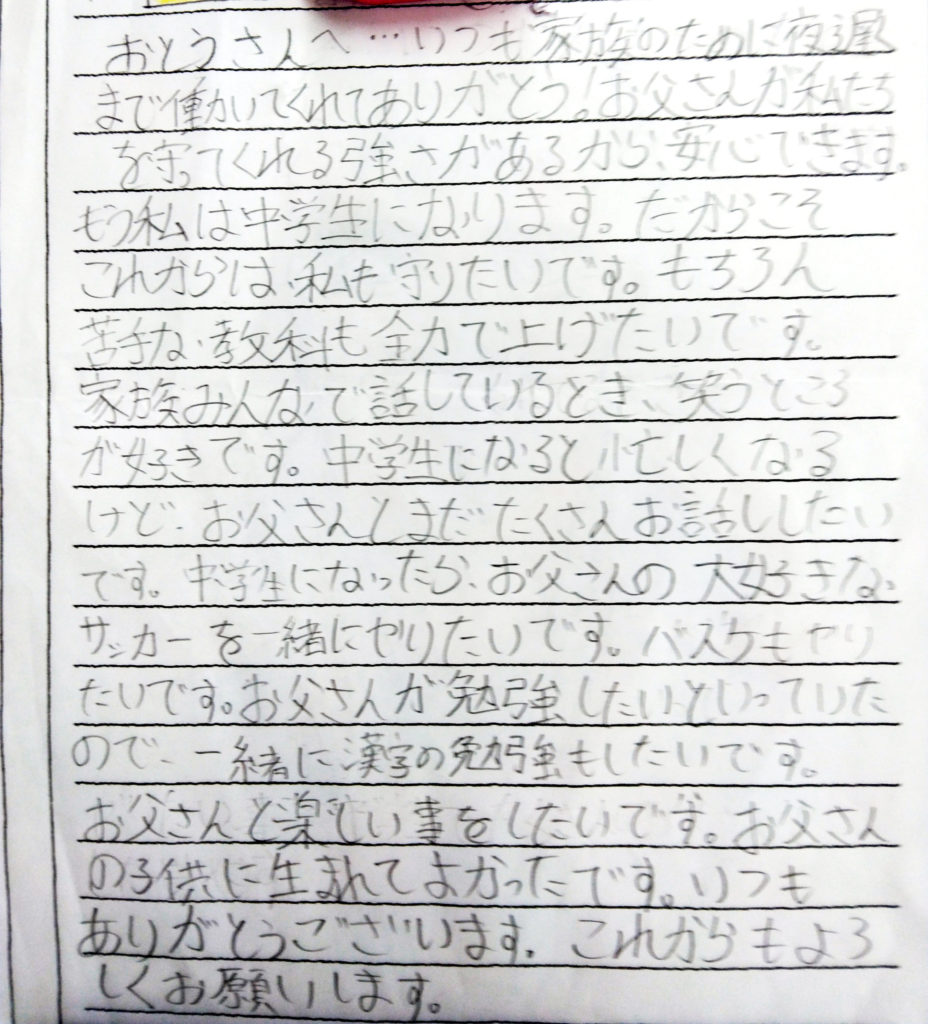 おとうさんへ…いつも家族のために夜遅
まで働いてくれてありがとう!お父さんが私たち
を守ってくれる強さがあるから、安心できます。
もう私は中学生になります。だからこそ
これからは、私も守りたいです。もちろん
苦手な教科も全力で上げたいです。
家族みんなで話しているとき、笑うところ
が好きです。中学生になると忙しくなる
けど、お父さんとまだたくさんお話ししたい
です。中学生になったら、お父さんの大好きな
サッカーを一緒にやりたいです。バスケもやり
たいです。お父さんが勉強したいといっていた
ので、一緒に漢字の勉強もしたいです。
お父さんと楽しい事をしたいです。お父さん
の子供に生まれてよかったです。いつも
ありがとうございます。これからもよろ
しくお願いします。